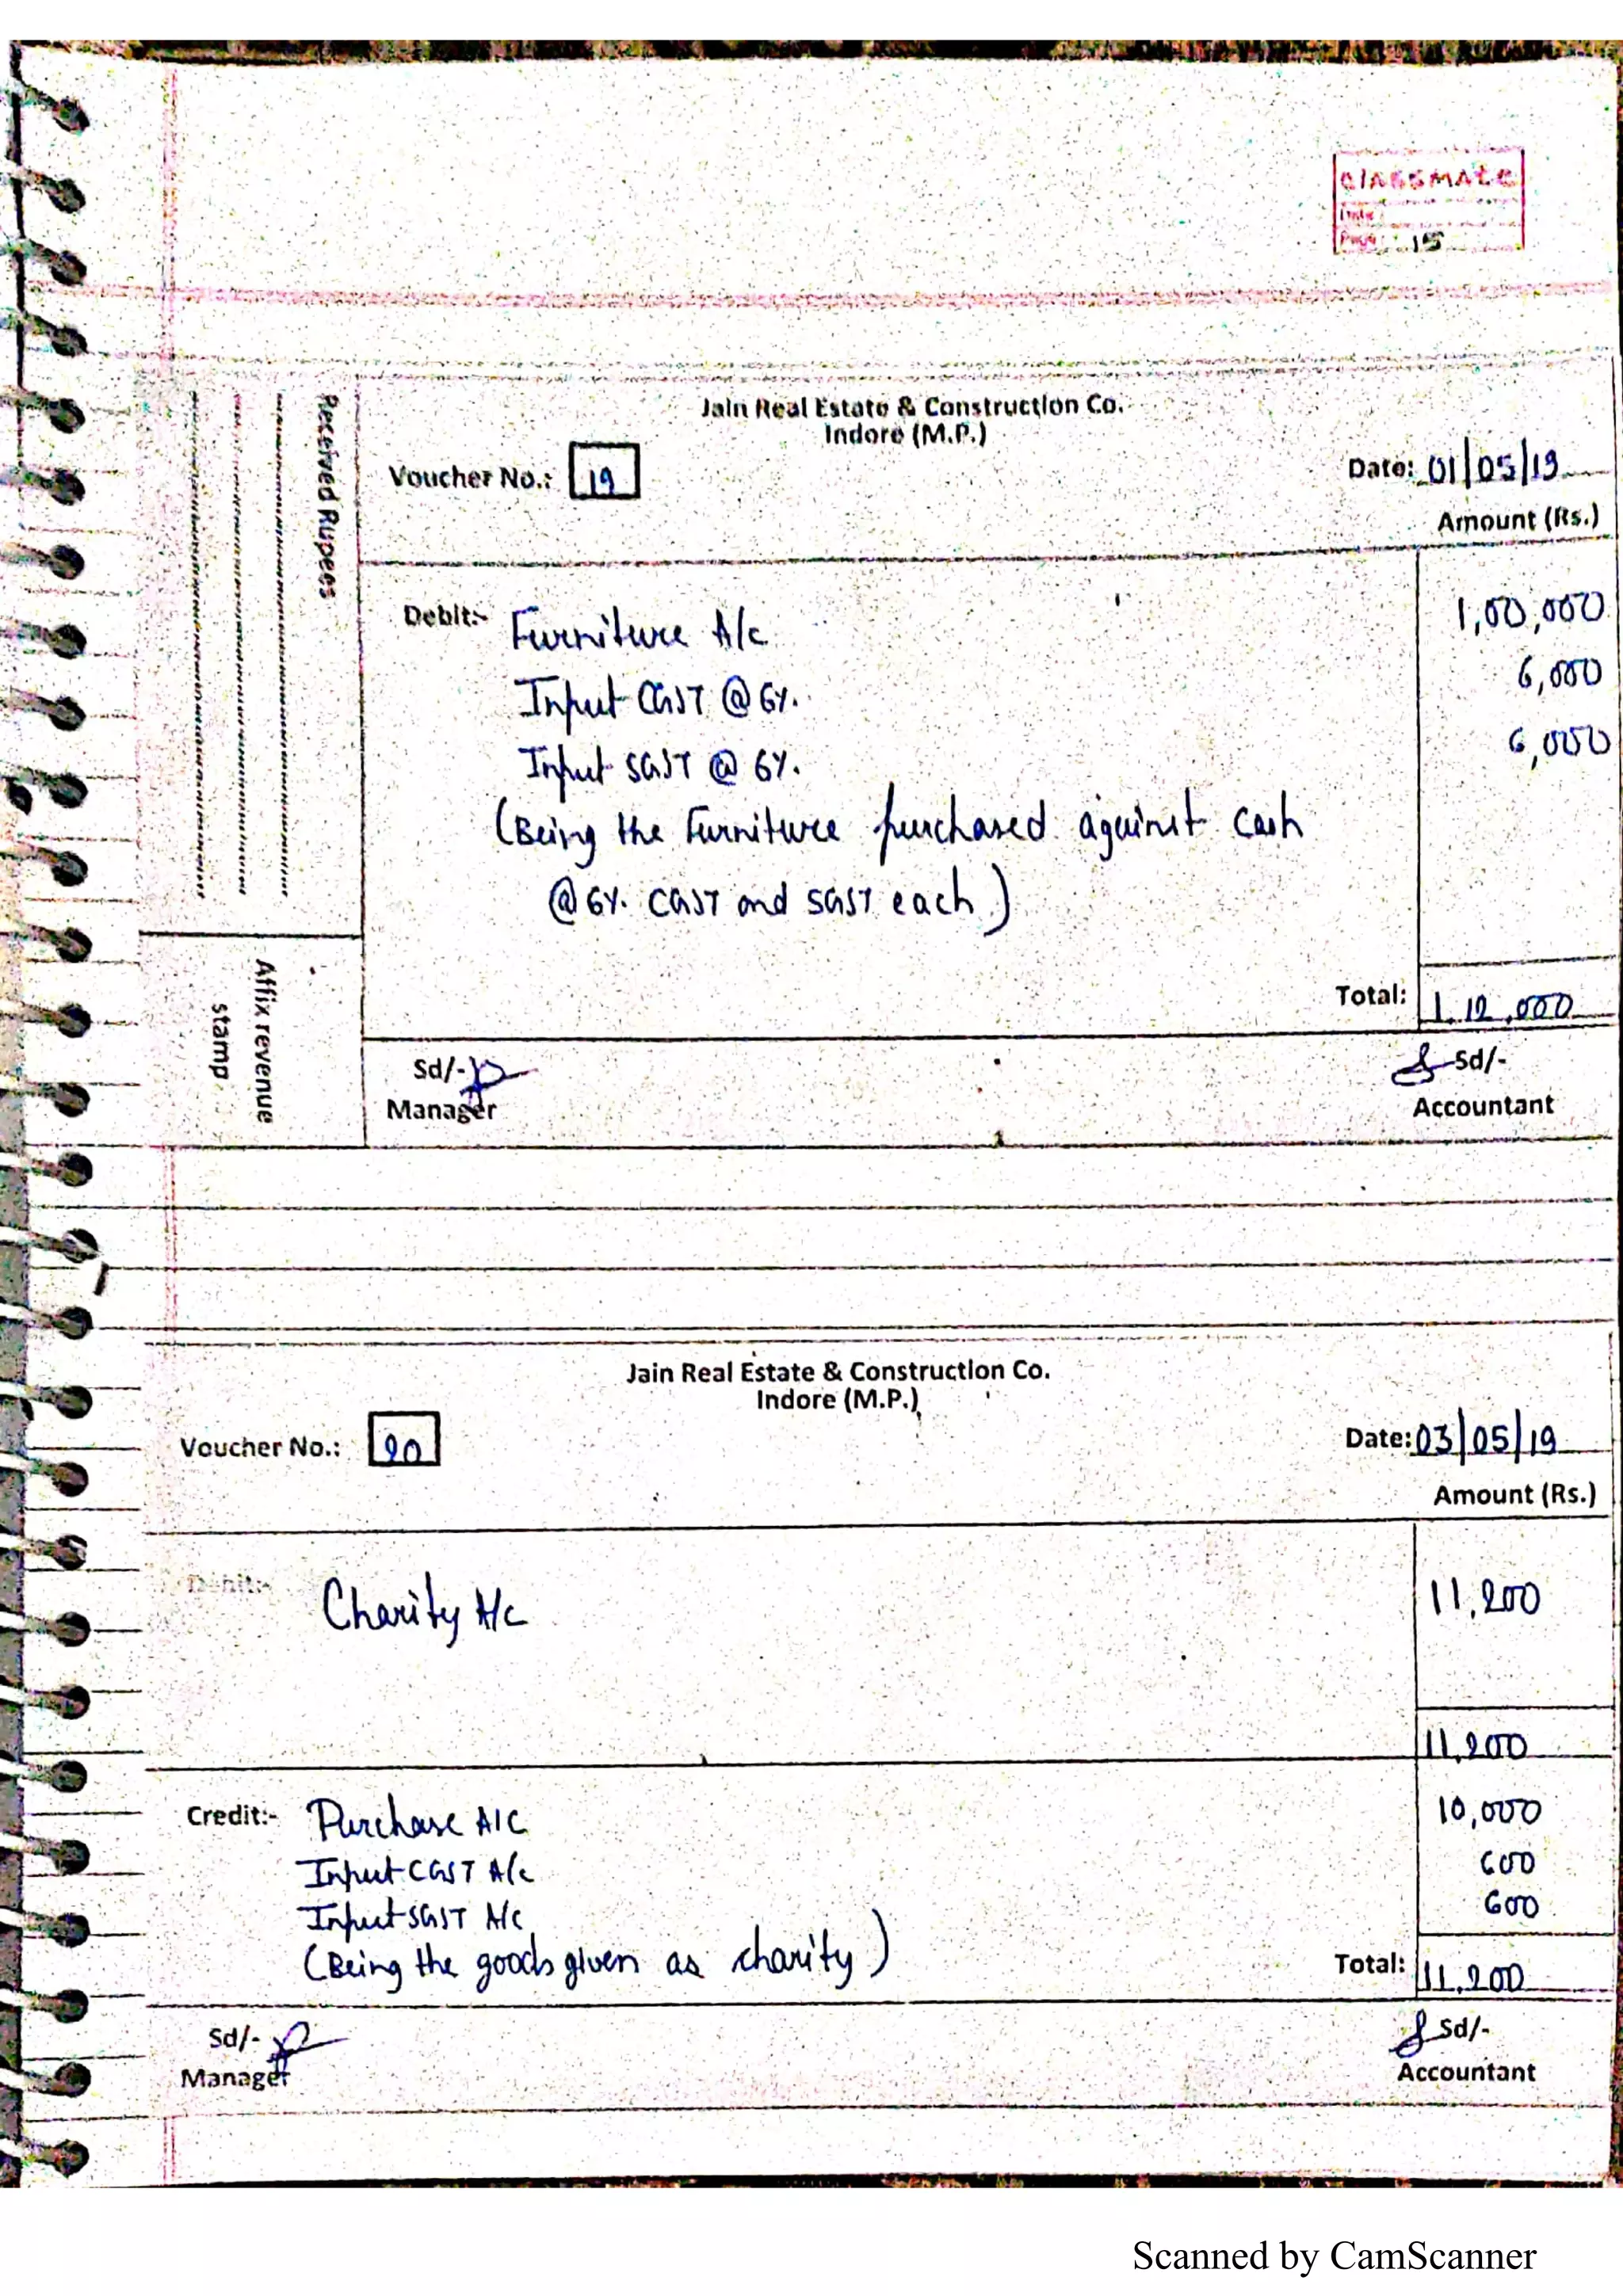 classmate
Date
Page 15
Jain Real Estate & Construction Co.
Indore (M.P.)
Voucher No.: 19
Date: 01/05/19
Amount (Rs.)
Received Rupees
Debit:- Furniture A/c 1,00,000
Input CGST @ 6%. 6,000
Input SGST @ 6%. 6,000
(Being the Furniture purchased against cash
@ 6%. CGST and SGST each)
Total: 1,12,000
Affix revenue
stamp
Sd/- Sd/-
Manager Accountant
Jain Real Estate & Construction Co.
Indore (M.P.)
Voucher No.: 20
Date: 03/05/19
Amount (Rs.)
Debit:- Charity A/c 11,200
11,200
Credit:- Purchase A/C 10,000
Input CGST A/c 600
Input SGST A/c 600
(Being the goods given as charity)
Total: 11,200
Sd/- Sd/-
Manager Accountant
Scanned by CamScanner